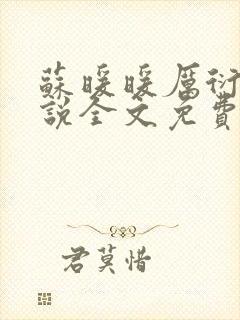 蘇暖暖厲衍
說全文免費
君莫惜